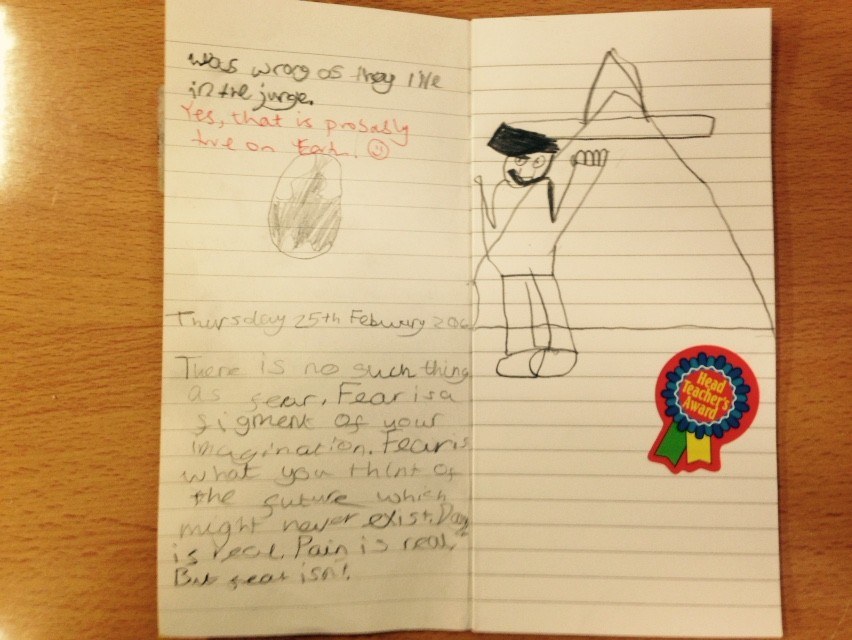 was wrog as they live
in the junge.
Yes, that is probably
true on Earth.
Thursday 25th Febuary
There is no such thing
as fear. Fear is a
figment of your
imagination. Fear is
what you think of
the future which
might never exist.
is real. Pain is real.
But fear isn't.
Head
Teacher's
Award